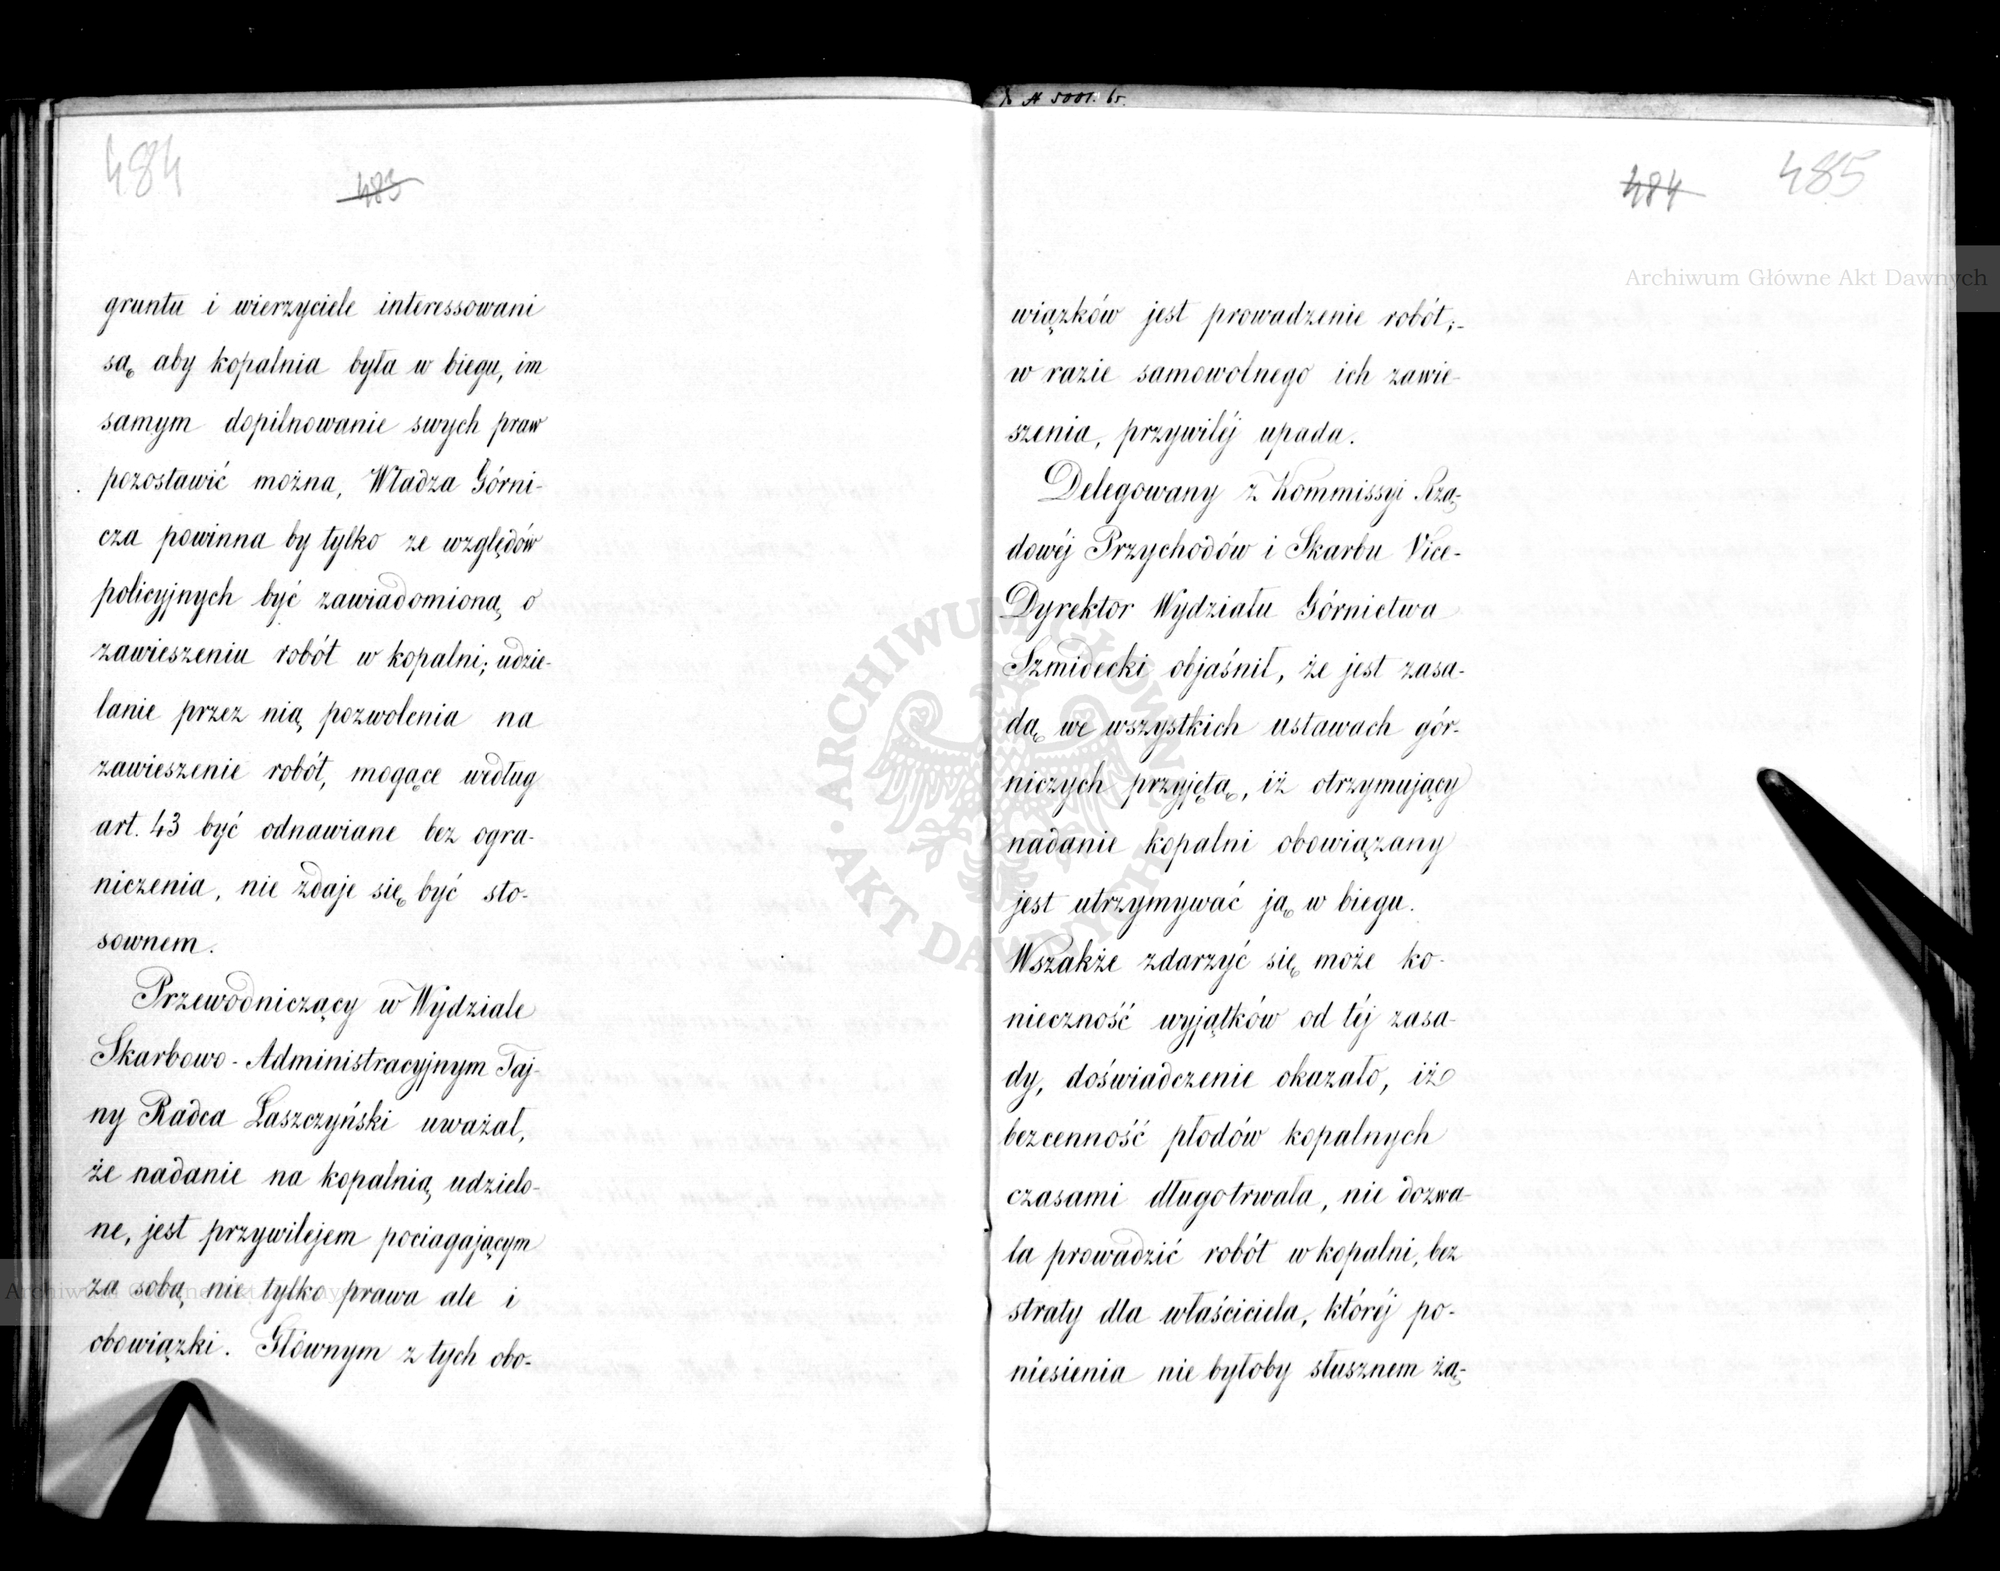 484
483
gruntu i wierzyciele interessowani
są, aby kopalnia była w biegu, im
samym dopilnowanie swych praw
pozostawić można, Władza Górni-
cza powinna by tylko ze względów
policyjnych być zawiadomioną o
zawieszeniu robót w kopalni; udzie-
lanie przez nią pozwolenia na
zawieszenie robót, mogące według
art. 43 być odnawiane bez ogra-
niczenia, nie zdaje się być sto-
sownem.
Przewodniczący w Wydziale
Skarbowo-Administracyjnym Taj-
ny Radca Łaszczyński uważał,
że nadanie na kopalnią udzielo-
ne, jest przywilejem pociagającym
za sobą nie tylko prawa ale i
obowiązki. Głównym z tych obo-
№ 5001.
484
485
wiązków jest prowadzenie robót;-
w razie samowolnego ich zawie-
szenia, przywiléj upada.
Delegowany z Kommissyi Rzą-
dowéj Przychodów i Skarbu Vice-
Dyrektor Wydziału Górnictwa
Szmidecki objaśnił, że jest zasa-
dą we wszystkich ustawach gór-
niczych przyjętą, iż otrzymujący
nadanie kopalni obowiązany
jest utrzymywać ją w biegu.
Wszakże zdarzyć się może ko-
nieczność wyjątków od téj zasa-
dy, doświadczenie okazało, iż
bezcenność płodów kopalnych
czasami długotrwała, nie dozwa-
la prowadzić robót w kopalni, bez
straty dla właściciela, któréj po-
niesienia nie byłoby słusznem żą-
Archiwum Główne Akt Dawnych
ARCHIWUM GŁÓWNE AKT DAWNYCH